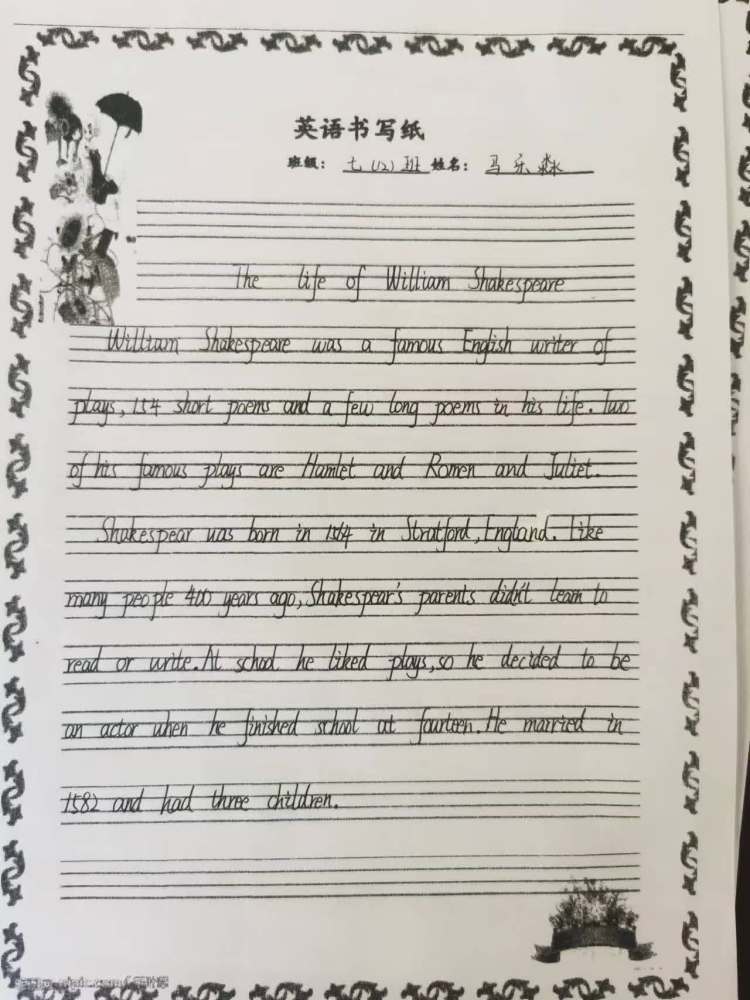 英语书写纸
班级： 七（12）班 姓名： 马乐淼
The life of William Shakespeare
William Shakespeare was a famous English writer of
plays, 154 short poems and a few long poems in his life. Two
of his famous plays are Hamlet and Romen and Juliet.
Shakespear was born in 1564 in Stratford, England. Like
many people 400 years ago, Shakespear's parents didn't learn to
read or write. At school he liked plays, so he decided to be
an actor when he finished school at fourteen. He married in
1582 and had three children.